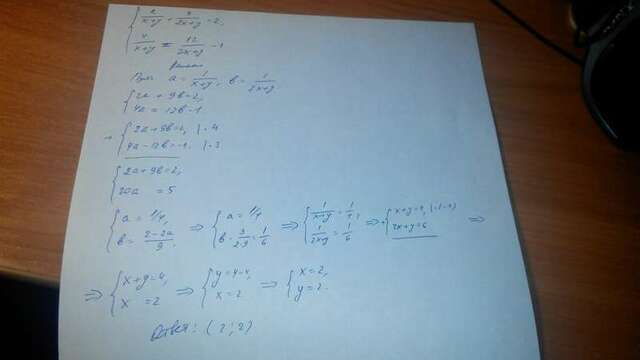 { 2/(x+y) + 9/(2x+y) = 2,
4/(x+y) = 12/(2x+y) - 1
a = 1/(x+y), b = 1/(2x+y)
{ 2a + 9b = 2,
4a = 12b - 1
{ 2a + 9b = 2, | · 4
4a - 12b = -1 | · 3
{ 2a + 9b = 2,
20a = 5
{ a = 1/4, b = (2-2a)/9 ⇒ { a = 1/4, b = 3/(2·9) = 1/6 ⇒ { 1/(x+y) = 1/4, 1/(2x+y) = 1/6 ⇒ { x+y=4, | · (-1) 2x+y=6 ⇒
⇒ { x+y=4, x = 2 ⇒ { y=4-x, x=2 ⇒ { x=2, y=2.
Ответ: (2; 2)